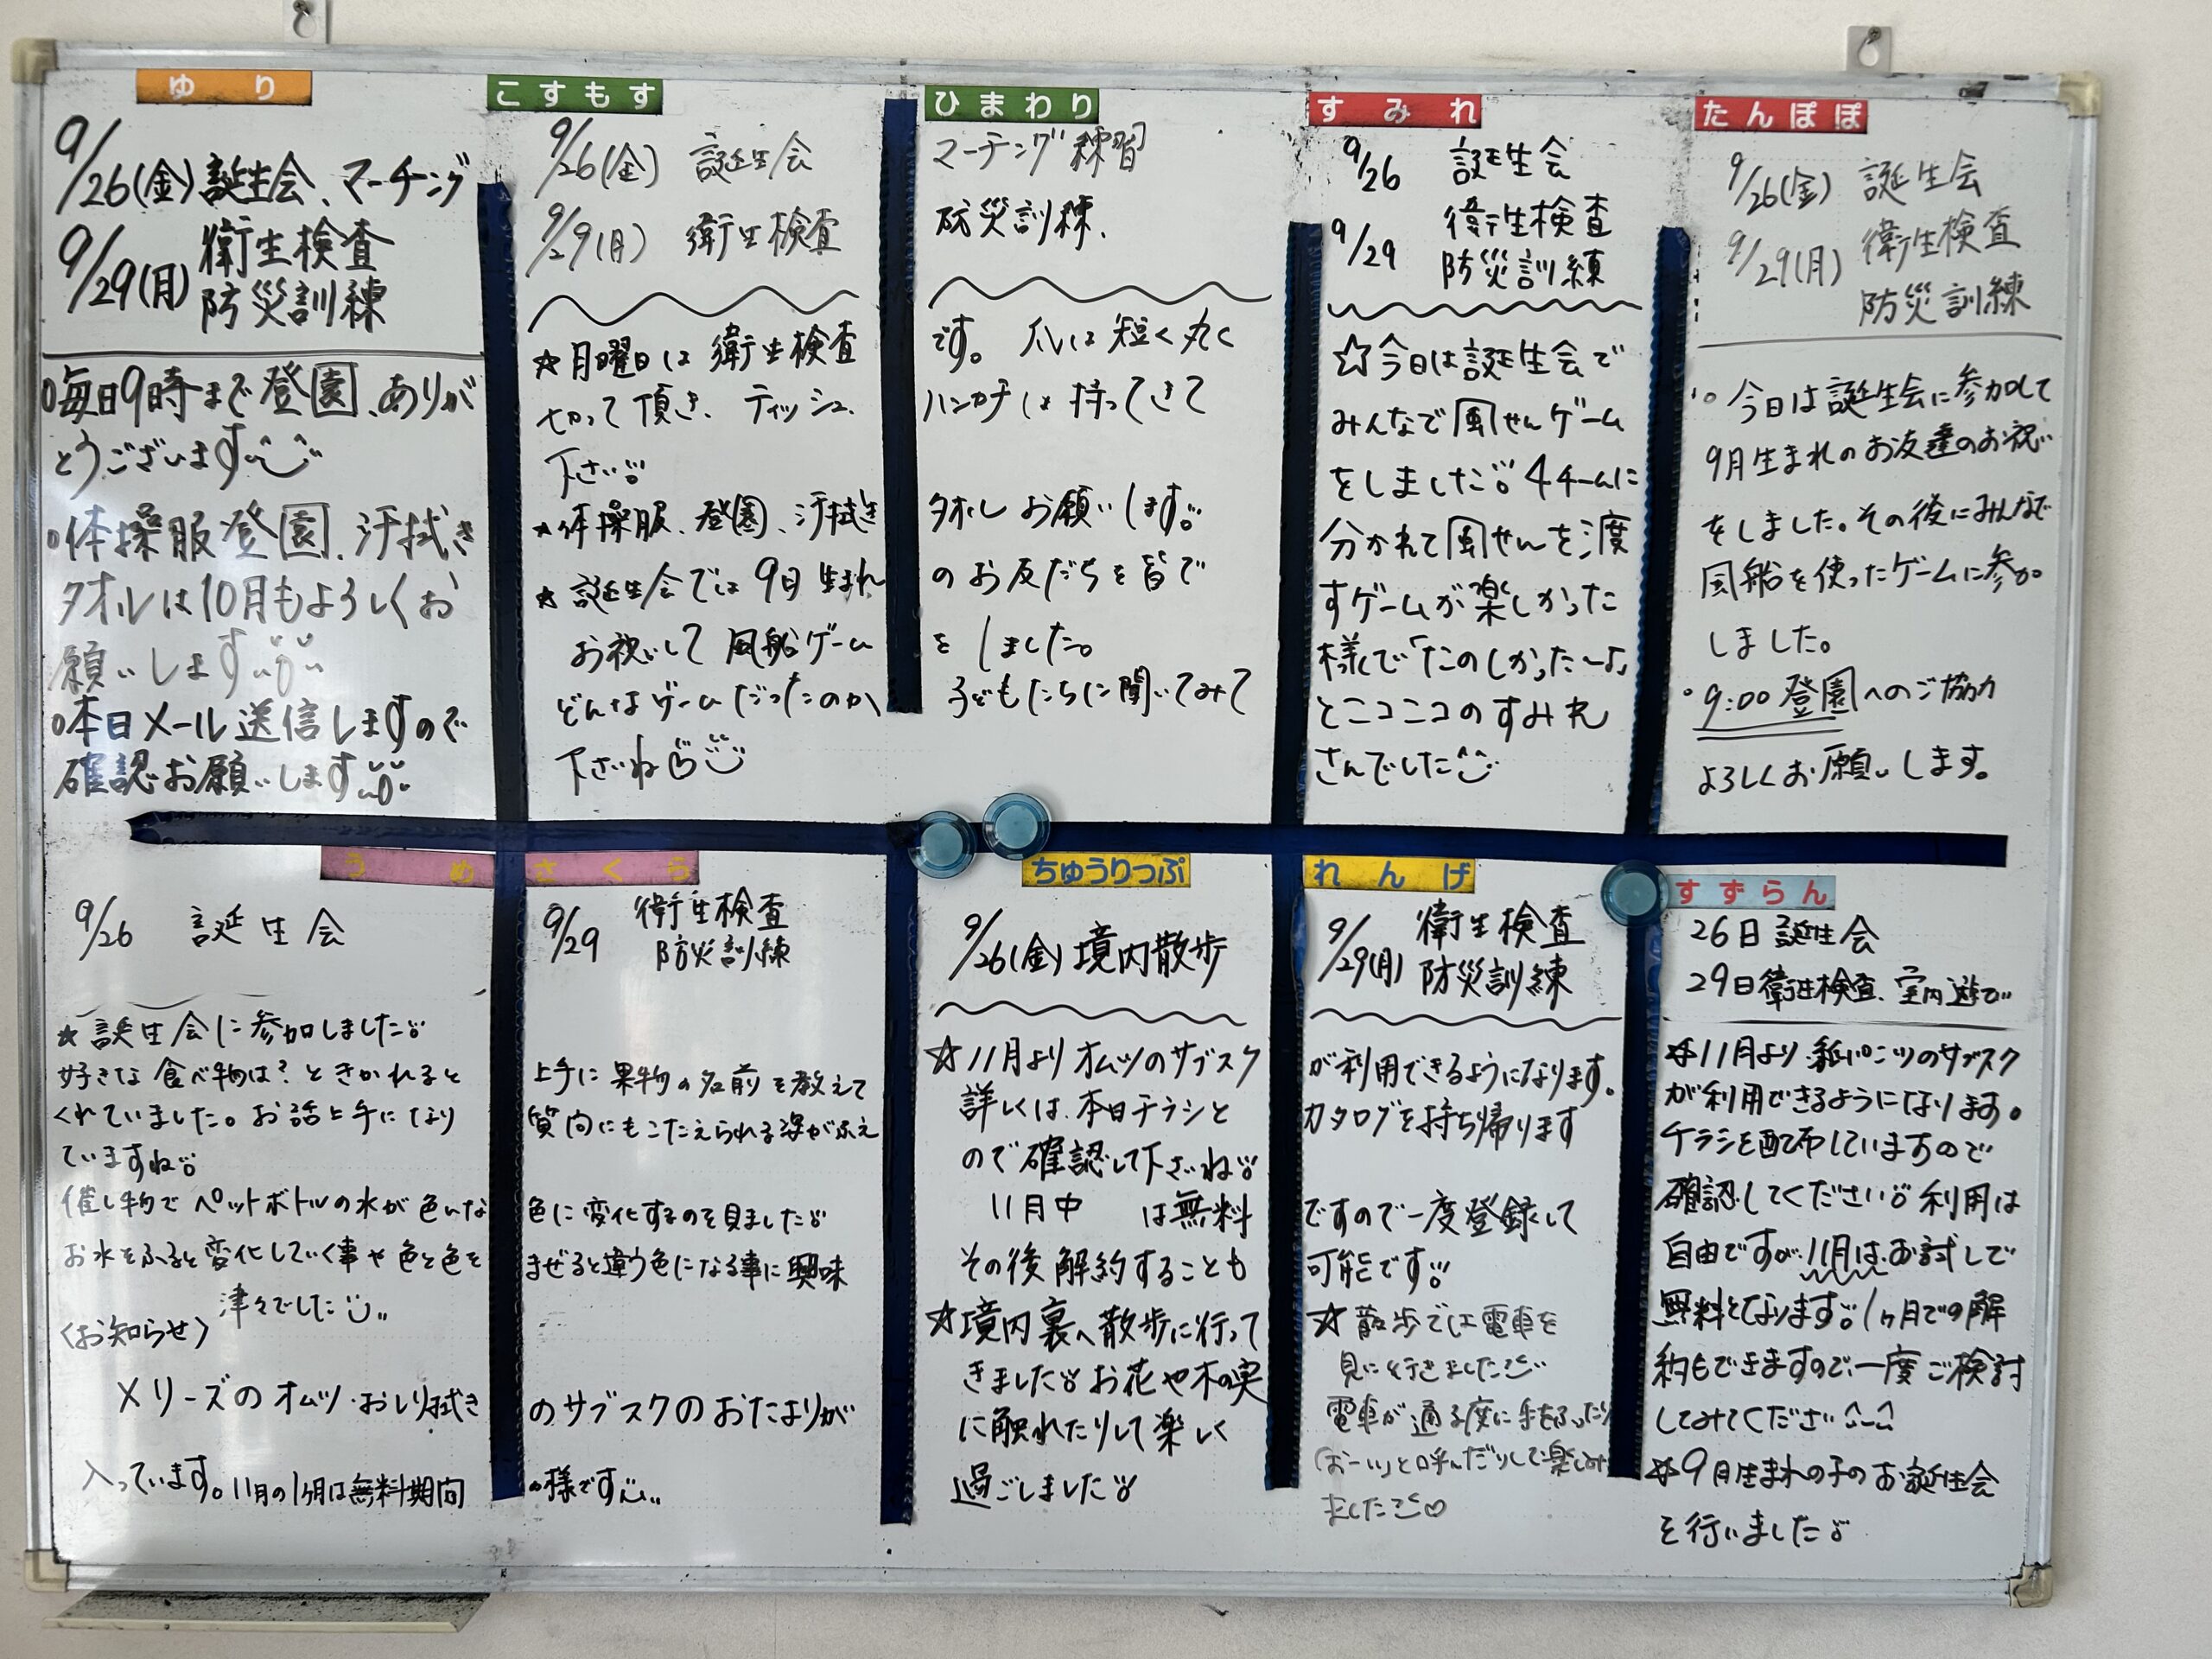 ゆり
9/26(金)誕生会、マーチング
9/29(月) 衛生検査
防災訓練
○毎日9時まで登園、ありが
とうございます
○体操服登園、汗拭き
タオルは10月もよろしくお
願いします
○本日メール送信しますので
確認お願いします
こすもす ひまわり
9/26(金) 誕生会 マーチング練習
9/29(月) 衛生検査 防災訓練、
☆月曜日は衛生検査です。爪は短く丸く
切って頂き、ティッシュ、ハンカチは持ってきて
下さい
☆体操服、登園、汗拭きタオルお願いします。
☆誕生会では9月生まれのお友だちを皆で
お祝いして風船ゲームをしました。
どんなゲームだったのか、子どもたちに聞いてみて
下さいね♡
すみれ
9/26 誕生会
9/29 衛生検査
防災訓練
☆今日は誕生会で
みんなで風せんゲーム
をしました!!4チームに
分かれて風せんを渡
すゲームが楽しかった
様で「たのしかった〜♪」
とニコニコのすみれ
さんでした
たんぽぽ
9/26(金) 誕生会
9/29(月) 衛生検査
防災訓練
○今日は誕生会に参加して
9月生まれのお友達のお祝い
をしました。その後にみんなで
風船を使ったゲームに参加
しました。
○9:00登園へのご協力
よろしくお願いします。
うめ さくら
9/26 誕生会 9/29 衛生検査
防災訓練
☆誕生会に参加しました!!
好きな食べ物は?ときかれると上手に果物の名前を教えて
くれていました。お話上手になり質問にもこたえられる姿がふえ
ていますね!!
催し物でペットボトルの水が色いな色に変化するのを見ました!!
お水をふると変化していく事や色と色をまぜると違う色になる事に興味
津々でした
〈お知らせ〉
メリーズのオムツ・おしり拭きのサブスクのおたよりが
入っています。11月の1ヶ月は無料期間の様です
ちゅうりっぷ れんげ
9/26(金) 境内散歩 9/29(月) 衛生検査
防災訓練
☆11月よりオムツのサブスクが利用できるようになります。
詳しくは、本日チラシとカタログを持ち帰ります
ので確認して下さいね!!
11月中は無料ですので一度登録して
その後解約することも可能です!!
☆境内裏へ散歩に行って
きました!!お花や木の実
に触れたりして楽しく
過ごしました!!
☆散歩では電車を
見に行きました
電車が通る度に手をふったり
「おーい」と呼んだりして楽しみ
ました♡
すずらん
26日 誕生会
29日衛生検査、室内遊び
☆11月より紙パンツのサブスク
が利用できるようになります。
チラシを配布していますので
確認してください!!利用は
自由ですが、11月はお試しで
無料となります!!1ヶ月での解
約もできますので、一度ご検討
してみてください^-^
☆9月生まれの子のお誕生会
を行いました!!